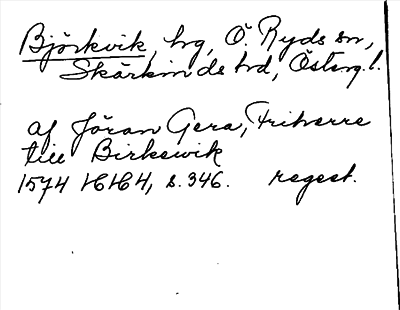 Björkvik, hg, Ö. Ryds sn,
Skärkinds hd, Österg. l.
af Jöran Gera, Friherre
till Birkewik
1574 HH 4, s. 346. regest.